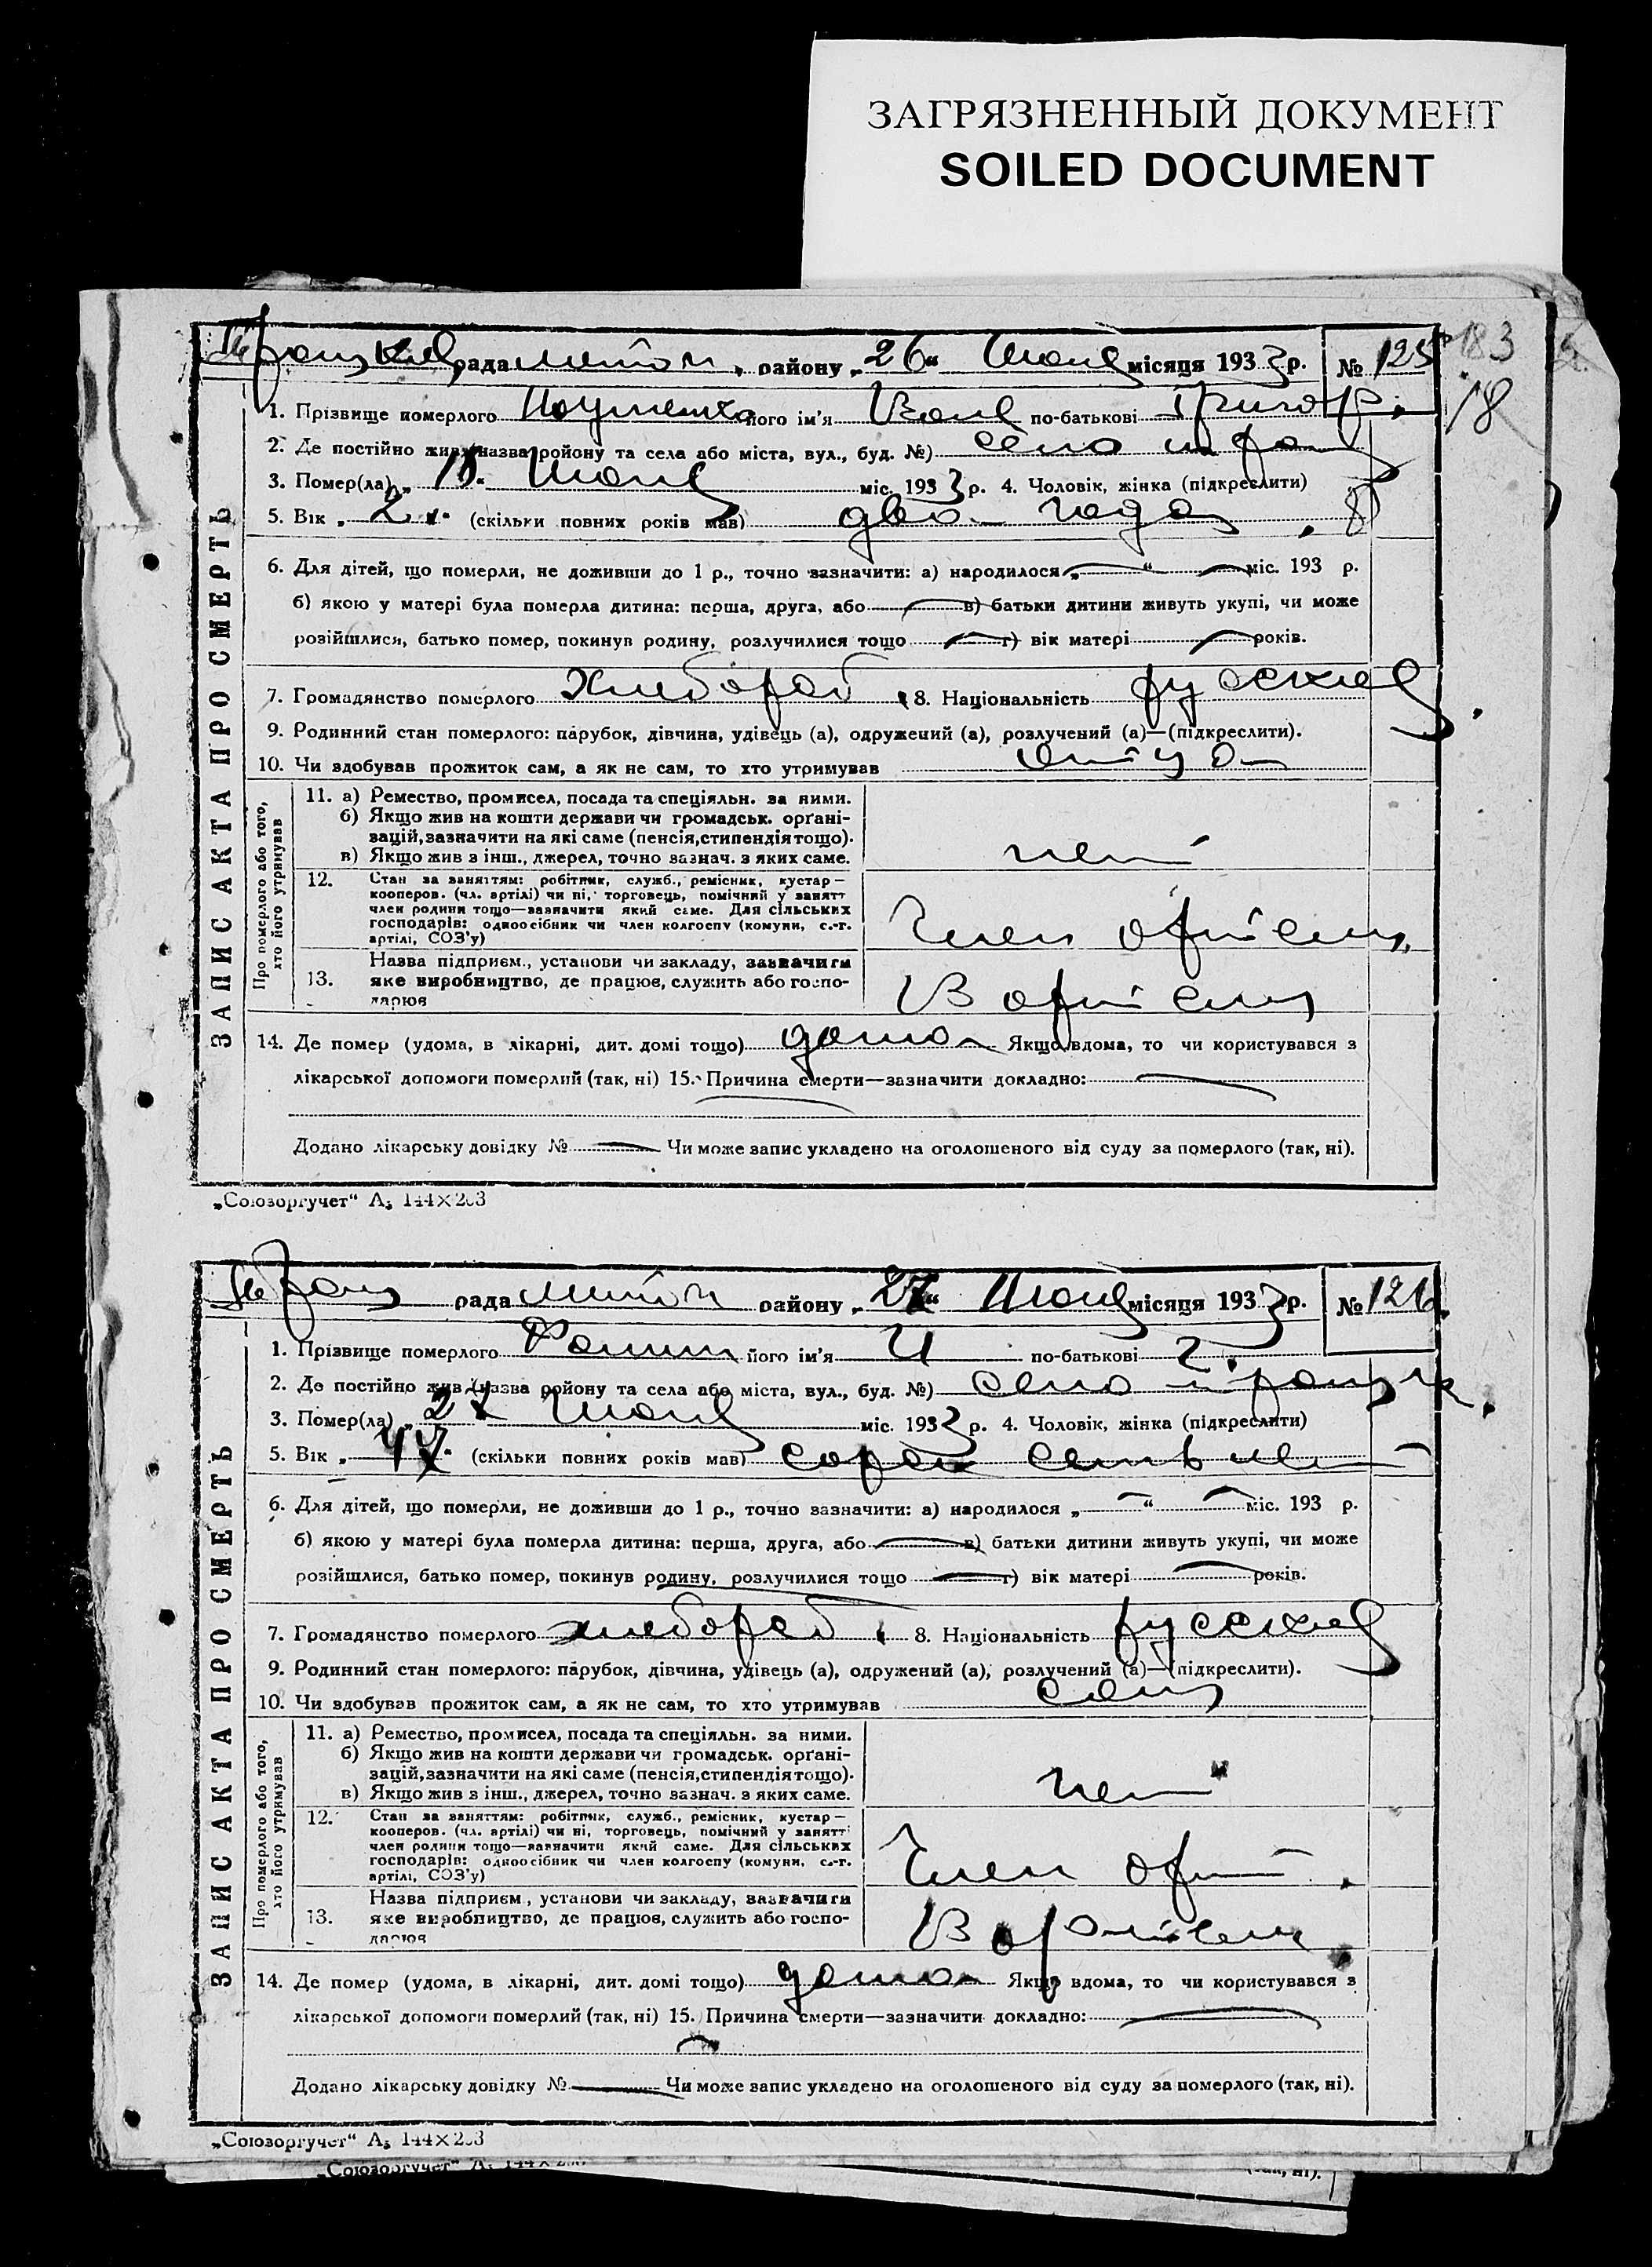 ЗАГРЯЗНЕННЫЙ ДОКУМЕНТ
SOILED DOCUMENT
183
18
рада район у „26“ Июня місяця 1933 р. № 125
1. Прізвище померлого його ім'я Ваня по-батькові Григор.
2. Де постійно жив (назва ройону та села або міста, вул., буд. №) село
3. Помер(ла) „ Июня міс. 1933 р. 4. Чоловік, жінка (підкреслити)
5. Вік „2“ (скільки повних років мав) два года
6. Для дітей, що померли, не доживши до 1 р., точно зазначити: а) народилося „ “ міс. 193 р.
б) якою у матері була померла дитина: перша, друга, або в) батьки дитини живуть укупі, чи може
розійшлися, батько помер, покинув родину, розлучилися тощо г) вік матері років.
7. Громадянство померлого хлебороб 8. Національність русский
9. Родинний стан померлого: парубок, дівчина, удівець (а), одружений (а), розлучений (а)—(підкреслити).
10. Чи здобував прожиток сам, а як не сам, то хто утримував
ЗАПИС АКТА ПРО СМЕРТЬ
Про померлого або того, хто його утримував
11. а) Ремество, промисел, посада та спеціяльн. за ними.
б) Якщо жив на кошти держави чи громадськ. орґані-
зацій, зазначити на які саме (пенсія, стипендія тощо).
в) Якщо жив з інш., джерел, точно зазнач. з яких саме.
нет
12. Стан за заняттям: робітник, служб., ремісник, кустар—
кооперов. (чл. артілі) чи ні, торговець, помічний у занятт
член родини тощо—зазначити який саме. Для сільських
господарів: одноосібник чи член колгоспу (комуни, с.-г.
артілі, СОЗ'у)
Член артели
13. Назва підприєм., установи чи закладу, зазначити
яке виробництво, де працює, служить або госпо-
дарює
В артели
14. Де помер (удома, в лікарні, дит. домі тощо) дома Якщо вдома, то чи користувався з
лікарської допомоги померлий (так, ні) 15. Причина смерти—зазначити докладно:
Додано лікарську довідку № Чи може запис укладено на оголошеного від суду за померлого (так, ні).
„Союзоргучет“ А₅ 144×203
рада району „27“ Июня місяця 1933 р. № 126
1. Прізвище померлого його ім'я И по-батькові Г.
2. Де постійно жив (назва ройону та села або міста, вул., буд. №) село
3. Помер(ла) „27 Июня міс. 1933 р. 4. Чоловік, жінка (підкреслити)
5. Вік „47“ (скільки повних років мав) сорок семь лет
6. Для дітей, що померли, не доживши до 1 р., точно зазначити: а) народилося „ “ міс. 193 р.
б) якою у матері була померла дитина: перша, друга, або в) батьки дитини живуть укупі, чи може
розійшлися, батько помер, покинув родину, розлучилися тощо г) вік матері років.
7. Громадянство померлого хлебороб 8. Національність русский
9. Родинний стан померлого: парубок, дівчина, удівець (а), одружений (а), розлучений (а)—(підкреслити).
10. Чи здобував прожиток сам, а як не сам, то хто утримував сам
ЗАПИС АКТА ПРО СМЕРТЬ
Про померлого або того, хто його утримував
11. а) Ремество, промисел, посада та спеціяльн. за ними.
б) Якщо жив на кошти держави чи громадськ. орґані-
зацій, зазначити на які саме (пенсія, стипендія тощо).
в) Якщо жив з інш., джерел, точно зазнач. з яких саме.
нет
12. Стан за заняттям: робітник, служб., ремісник, кустар—
кооперов. (чл. артілі) чи ні, торговець, помічний у занятт
член родини тощо—зазначити який саме. Для сільських
господарів: одноосібник чи член колгоспу (комуни, с.-г.
артілі, СОЗ'у)
Член арт.
13. Назва підприєм., установи чи закладу, зазначити
яке виробництво, де працює, служить або госпо-
дарює
В артели
14. Де помер (удома, в лікарні, дит. домі тощо) дома Якщо вдома, то чи користувався з
лікарської допомоги померлий (так, ні) 15. Причина смерти—зазначити докладно:
Додано лікарську довідку № Чи може запис укладено на оголошеного від суду за померлого (так, ні).
„Союзоргучет“ А₅ 144×203
„Союзоргучет“ (так, ні).